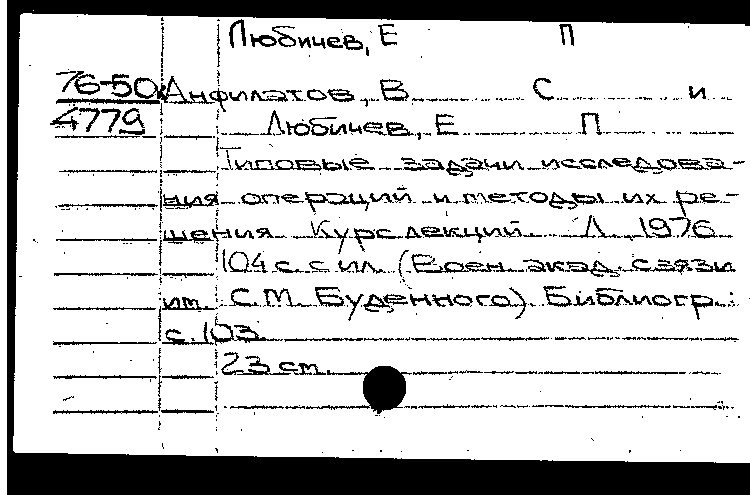 Любичев, Е П
76-50 Анфилатов, В С и
4779 Любичев, Е П
Типовые задачи исследова-
ния операций и методы их ре-
шения Курс лекций. Л, 1976
104 с. с ил (Воен. акад. связи
им. С.М. Буденного) Библиогр.:
с. 103.
23 см.